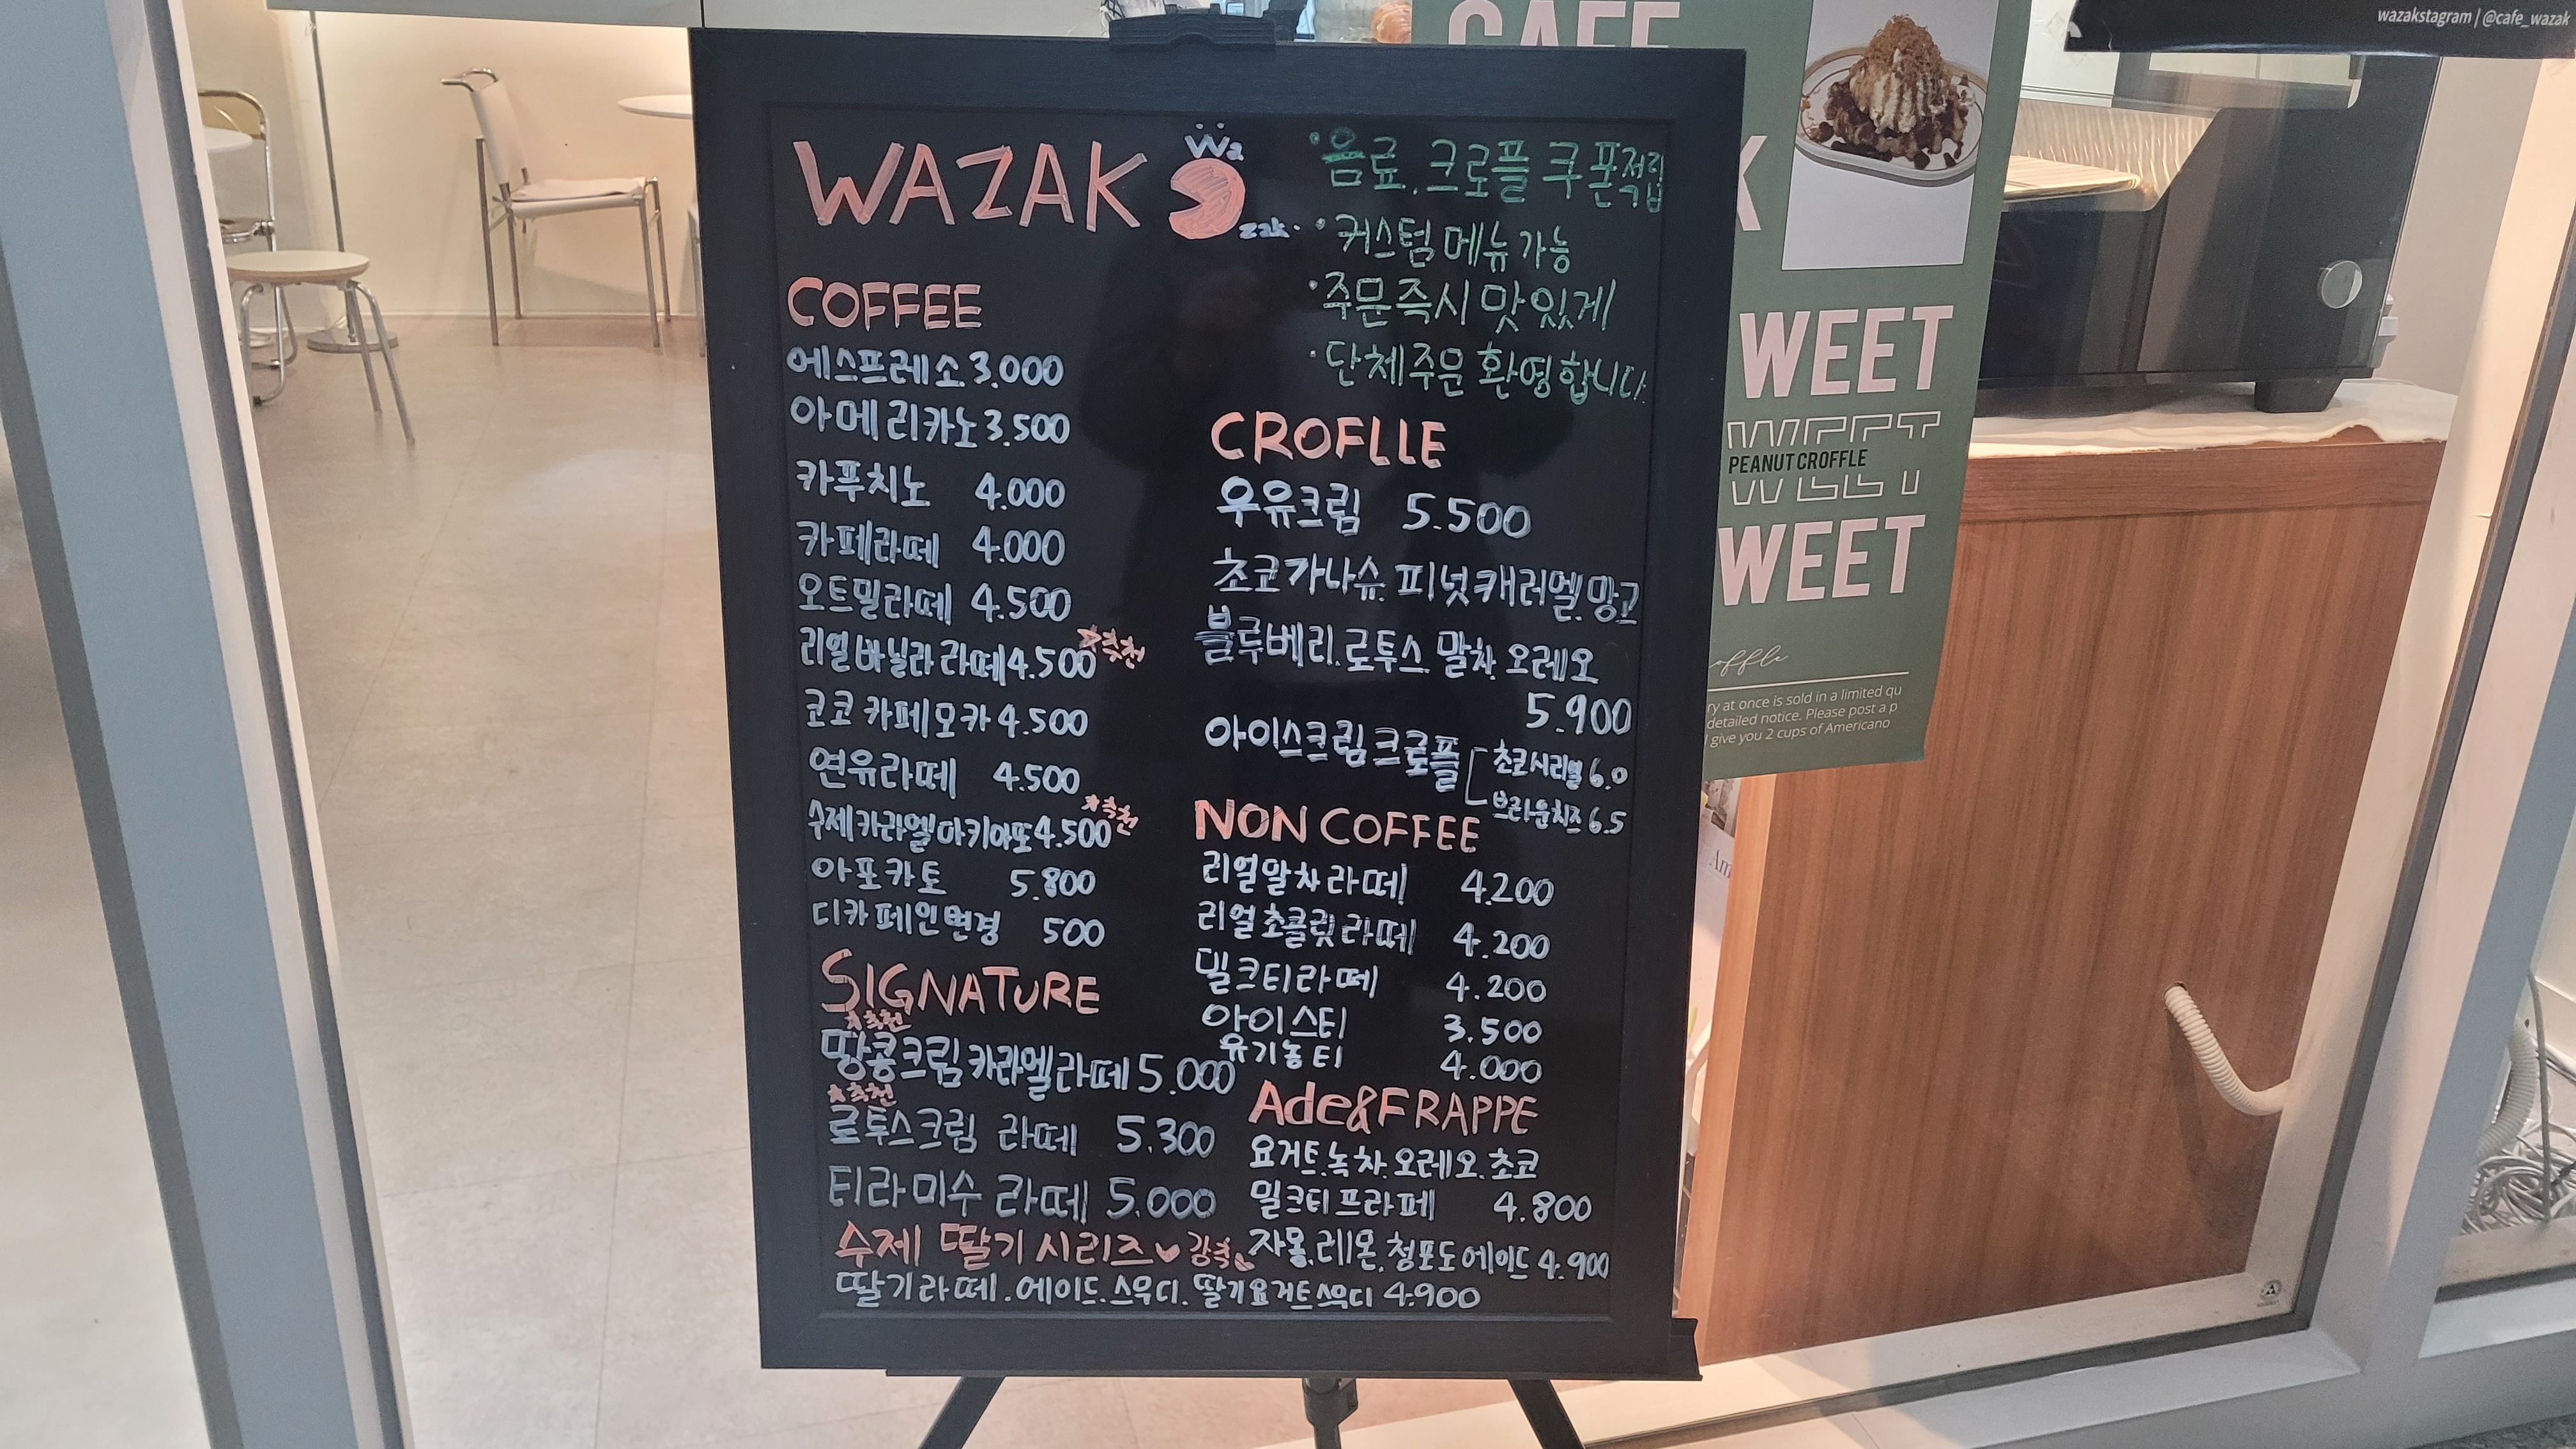 wazakstagram | @cafe_wazak
CAFE
WAZAK
Wa
zak.
· 음료. 크로플 쿠폰적립
· 커스텀 메뉴 가능
· 주문즉시 맛있게
· 단체주문 환영합니다.
COFFEE
에스프레소 3.000
아메리카노 3.500
카푸치노 4.000
카페라떼 4.000
오트밀라떼 4.500
리얼바닐라 라떼 4.500 ☆추천
코코 카페모카 4.500
연유라떼 4.500
수제카라멜마키아또 4.500 ☆추천
아포카토 5.800
디카페인변경 500
SIGNATURE
☆추천
땅콩크림 카라멜라떼 5.000
☆추천
로투스크림 라떼 5.300
티라미수 라떼 5.000
수제 딸기 시리즈 ♥ 강추
딸기라떼. 에이드. 스무디. 딸기요거트스무디 4.900
CROFLLE
우유크림 5.500
초코가나슈. 피넛캐러멜. 망고
블루베리. 로투스. 말차. 오레오
5.900
아이스크림크로플 [ 초코시리얼 6.0
브라운치즈 6.5
NON COFFEE
리얼말차라떼 4.200
리얼초콜릿라떼 4.200
밀크티라떼 4.200
아이스티 3.500
유기농티 4.000
Ade&FRAPPE
요거트. 녹차. 오레오. 초코
밀크티프라페 4.800
자몽. 레몬. 청포도에이드 4.900
K
WEET
WEET
PEANUT CROFFLE
WEET
WEET
offle
ry at once is sold in a limited qu
detailed notice. Please post a p
give you 2 cups of Americano
Am